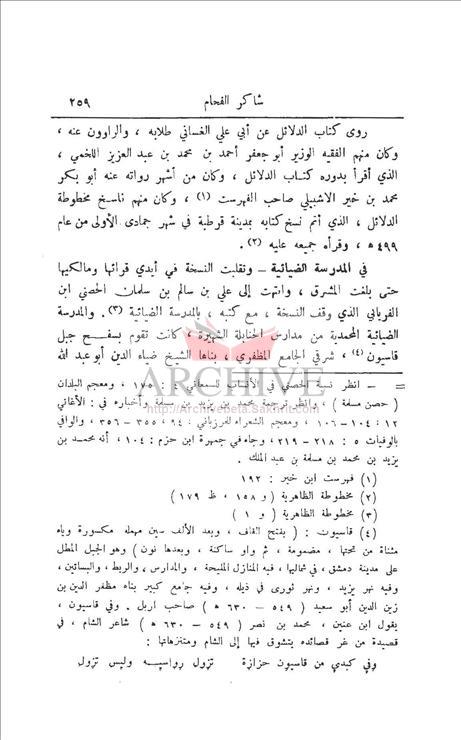 شاكر الفحام ٢٥٩
روى كتاب الدلائل عن أبي علي الغساني طلابه ، والراوون عنه ،
وكان منهم الفقيه الوزير أبو جعفر أحمد بن محمد بن عبد العزيز اللخمي ،
الذي أقرأ بدوره كتاب الدلائل ، وكان من أشهر رواته عنه أبو بكر
محمد بن خير الاشبيلي صاحب الفهرست (١) ، وكان منهم ناسخ مخطوطة
الدلائل ، الذي أتم نسخ كتابه بمدينة قرطبة في شهر جمادى الأولى من عام
٤٩٩ ه ، وقرأه جميعه عليه (٢) .
في المدرسة الضيائية – وتقلبت النسخة في أيدي قرائها ومالكيها
حتى بلغت المشرق ، وانتهت إلى علي بن سالم بن سلمان الحصني ابن
الفريابي الذي وقف النسخة ، مع كتبه ، بالمدرسة الضيائية (٣) . والمدرسة
الضيائية المحمدية من مدارس الحنابلة الشهيرة ، كانت تقوم بسفح جبل
قاسيون (٤) ، شرقي الجامع المظفري ، بناها الشيخ ضياء الدين أبو عبد الله
= – انظر نسبة الحصني في الأنساب للسمعاني ٤ : ١٧٥ ، ومعجم البلدان
( حصن مسلمة ) ، وانظر ترجمة محمد بن يزيد بن مسلمة وأخباره في : الأغاني
١٢ : ١٠٤ – ١٠٦ ، ومعجم الشعراء للمرزباني : ٩٤ ، ٣٥٥ – ٣٥٦ ، والوافي
بالوفيات ٥ : ٢١٨ – ٢١٩ ، وجاء في جمهرة ابن حزم : ١٠٤ ، أنه محمد بن
يزيد بن محمد بن مسلمة بن عبد الملك .
(١) فهرست ابن خير : ١٩٢
(٢) مخطوطة الظاهرية ( و ١٥٨ ، ظ ١٧٩ )
(٣) مخطوطة الظاهرية ( و ١ )
(٤) قاسيون : ( بفتح القاف ، وبعد الألف سين مهملة مكسورة وياء
مثناة من تحتها ، مضمومة ، ثم واو ساكنة ، وبعدها نون ) وهو الجبل المطل
على مدينة دمشق ، في شماليها ، فيه المنازل المليحة ، والمدارس ، والربط ، والبساتين ،
وفيه نهر يزيد ، ونهر ثورى في ذيله ، وفيه جامع كبير بناه مظفر الدين بن
زين الدين أبو سعيد ( ٥٤٩ – ٦٣٠ ه ) صاحب اربل . وفي قاسيون ،
يقول ابن عنين ، محمد بن نصر ( ٥٤٩ – ٦٣٠ ه ) شاعر الشام ، في
قصيدة من غر قصائده يتشوق فيها إلى الشام ومتنزهاتها :
وفي كبدي من قاسيون حزازة تزول رواسيه وليس تزول
ARCHIVE
http://Archivebeta.Sakhrit.com